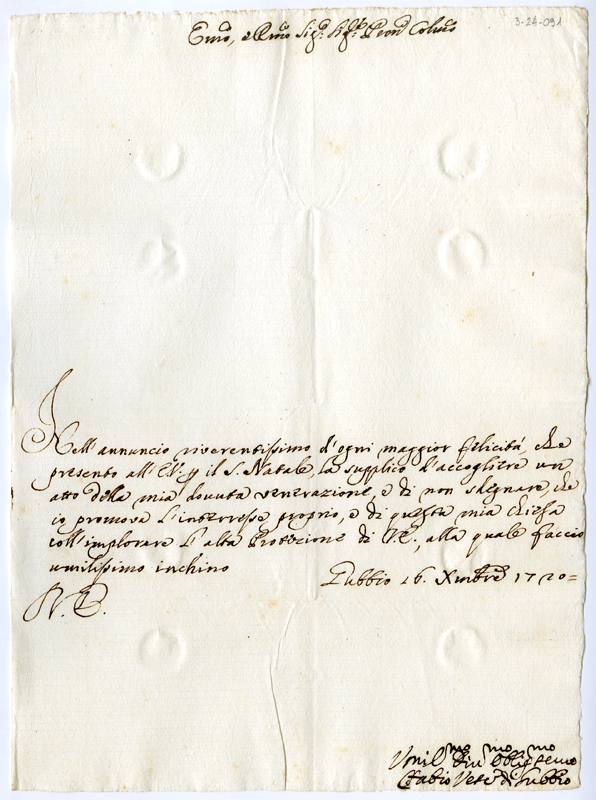 3-24-091
Emo, e Rmo Sigr. Sigr. Pron Colmo
Nell'annuncio riverentissimo d'ogni maggior felicità, che
presento all'E.V. p il S. Natale, la supplico d'accogliere un
atto della mia dovuta venerazione, e di non sdegnare, che
io promova l'interesse proprio, e di questa mia chiesa
coll'implorare l'alta Protezione di V.E., alla quale faccio
umilissimo inchino
Gubbio 16. Xmbre 1720=
Umilmo Divmo Obligmo Servo
Fabio Vesc. di Gubbio